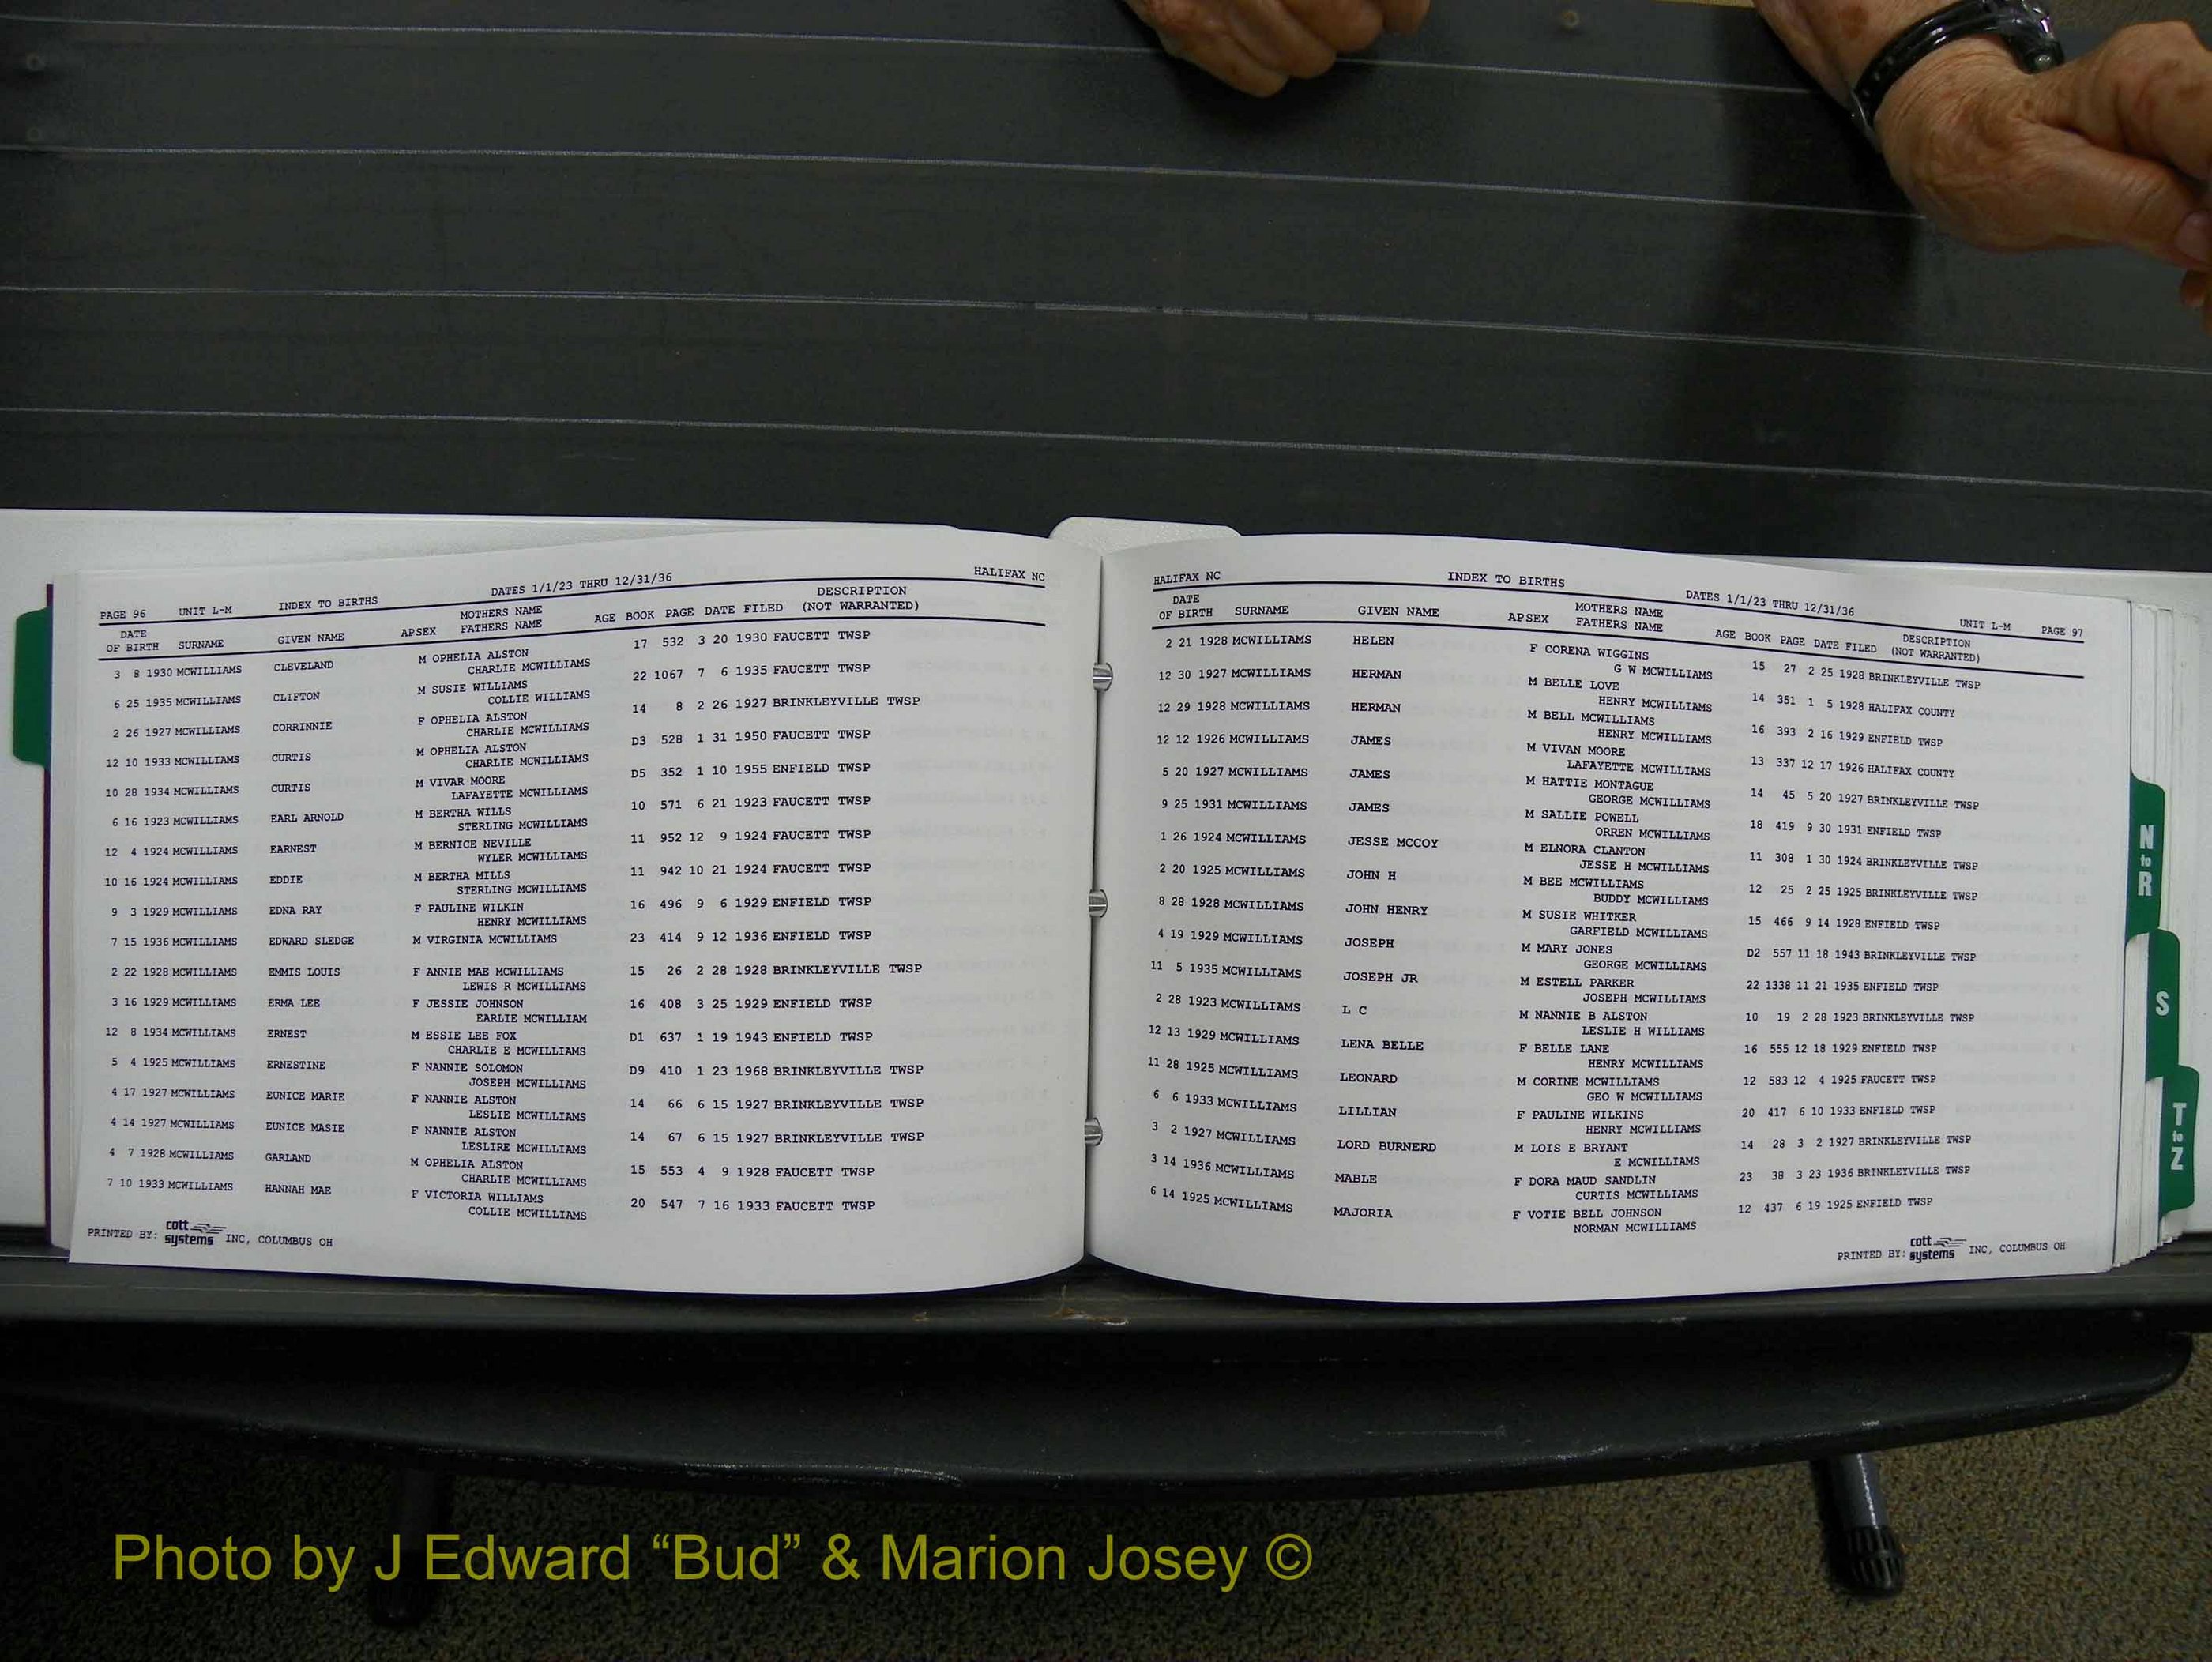 PAGE 96 UNIT L-M INDEX TO BIRTHS DATES 1/1/23 THRU 12/31/36 HALIFAX NC
DATE MOTHERS NAME DESCRIPTION
OF BIRTH SURNAME GIVEN NAME APSEX FATHERS NAME AGE BOOK PAGE DATE FILED (NOT WARRANTED)
3 8 1930 MCWILLIAMS CLEVELAND M OPHELIA ALSTON 17 532 3 20 1930 FAUCETT TWSP
CHARLIE MCWILLIAMS
6 25 1935 MCWILLIAMS CLIFTON M SUSIE WILLIAMS 22 1067 7 6 1935 FAUCETT TWSP
COLLIE WILLIAMS
2 26 1927 MCWILLIAMS CORRINNIE F OPHELIA ALSTON 14 8 2 26 1927 BRINKLEYVILLE TWSP
CHARLIE MCWILLIAMS
12 10 1933 MCWILLIAMS CURTIS M OPHELIA ALSTON D3 528 1 31 1950 FAUCETT TWSP
CHARLIE MCWILLIAMS
10 28 1934 MCWILLIAMS CURTIS M VIVAR MOORE D5 352 1 10 1955 ENFIELD TWSP
LAFAYETTE MCWILLIAMS
6 16 1923 MCWILLIAMS EARL ARNOLD M BERTHA WILLS 10 571 6 21 1923 FAUCETT TWSP
STERLING MCWILLIAMS
12 4 1924 MCWILLIAMS EARNEST M BERNICE NEVILLE 11 952 12 9 1924 FAUCETT TWSP
WYLER MCWILLIAMS
10 16 1924 MCWILLIAMS EDDIE M BERTHA MILLS 11 942 10 21 1924 FAUCETT TWSP
STERLING MCWILLIAMS
9 3 1929 MCWILLIAMS EDNA RAY F PAULINE WILKIN 16 496 9 6 1929 ENFIELD TWSP
HENRY MCWILLIAMS
7 15 1936 MCWILLIAMS EDWARD SLEDGE M VIRGINIA MCWILLIAMS 23 414 9 12 1936 ENFIELD TWSP
2 22 1928 MCWILLIAMS EMMIS LOUIS F ANNIE MAE MCWILLIAMS 15 26 2 28 1928 BRINKLEYVILLE TWSP
LEWIS R MCWILLIAMS
3 16 1929 MCWILLIAMS ERMA LEE F JESSIE JOHNSON 16 408 3 25 1929 ENFIELD TWSP
EARLIE MCWILLIAM
12 8 1934 MCWILLIAMS ERNEST M ESSIE LEE FOX D1 637 1 19 1943 ENFIELD TWSP
CHARLIE E MCWILLIAMS
5 4 1925 MCWILLIAMS ERNESTINE F NANNIE SOLOMON D9 410 1 23 1968 BRINKLEYVILLE TWSP
JOSEPH MCWILLIAMS
4 17 1927 MCWILLIAMS EUNICE MARIE F NANNIE ALSTON 14 66 6 15 1927 BRINKLEYVILLE TWSP
LESLIE MCWILLIAMS
4 14 1927 MCWILLIAMS EUNICE MASIE F NANNIE ALSTON 14 67 6 15 1927 BRINKLEYVILLE TWSP
LESLIRE MCWILLIAMS
4 7 1928 MCWILLIAMS GARLAND M OPHELIA ALSTON 15 553 4 9 1928 FAUCETT TWSP
CHARLIE MCWILLIAMS
7 10 1933 MCWILLIAMS HANNAH MAE F VICTORIA WILLIAMS 20 547 7 16 1933 FAUCETT TWSP
COLLIE MCWILLIAMS
PRINTED BY: cott systems INC, COLUMBUS OH
HALIFAX NC INDEX TO BIRTHS DATES 1/1/23 THRU 12/31/36 UNIT L-M PAGE 97
DATE MOTHERS NAME DESCRIPTION
OF BIRTH SURNAME GIVEN NAME APSEX FATHERS NAME AGE BOOK PAGE DATE FILED (NOT WARRANTED)
2 21 1928 MCWILLIAMS HELEN F CORENA WIGGINS 15 27 2 25 1928 BRINKLEYVILLE TWSP
G W MCWILLIAMS
12 30 1927 MCWILLIAMS HERMAN M BELLE LOVE 14 351 1 5 1928 HALIFAX COUNTY
HENRY MCWILLIAMS
12 29 1928 MCWILLIAMS HERMAN M BELL MCWILLIAMS 16 393 2 16 1929 ENFIELD TWSP
HENRY MCWILLIAMS
12 12 1926 MCWILLIAMS JAMES M VIVAN MOORE 13 337 12 17 1926 HALIFAX COUNTY
LAFAYETTE MCWILLIAMS
5 20 1927 MCWILLIAMS JAMES M HATTIE MONTAGUE 14 45 5 20 1927 BRINKLEYVILLE TWSP
GEORGE MCWILLIAMS
9 25 1931 MCWILLIAMS JAMES M SALLIE POWELL 18 419 9 30 1931 ENFIELD TWSP
ORREN MCWILLIAMS
1 26 1924 MCWILLIAMS JESSE MCCOY M ELNORA CLANTON 11 308 1 30 1924 BRINKLEYVILLE TWSP
JESSE H MCWILLIAMS
2 20 1925 MCWILLIAMS JOHN H M BEE MCWILLIAMS 12 25 2 25 1925 BRINKLEYVILLE TWSP
BUDDY MCWILLIAMS
8 28 1928 MCWILLIAMS JOHN HENRY M SUSIE WHITKER 15 466 9 14 1928 ENFIELD TWSP
GARFIELD MCWILLIAMS
4 19 1929 MCWILLIAMS JOSEPH M MARY JONES D2 557 11 18 1943 BRINKLEYVILLE TWSP
GEORGE MCWILLIAMS
11 5 1935 MCWILLIAMS JOSEPH JR M ESTELL PARKER 22 1338 11 21 1935 ENFIELD TWSP
JOSEPH MCWILLIAMS
2 28 1923 MCWILLIAMS L C M NANNIE B ALSTON 10 19 2 28 1923 BRINKLEYVILLE TWSP
LESLIE H WILLIAMS
12 13 1929 MCWILLIAMS LENA BELLE F BELLE LANE 16 555 12 18 1929 ENFIELD TWSP
HENRY MCWILLIAMS
11 28 1925 MCWILLIAMS LEONARD M CORINE MCWILLIAMS 12 583 12 4 1925 FAUCETT TWSP
GEO W MCWILLIAMS
6 6 1933 MCWILLIAMS LILLIAN F PAULINE WILKINS 20 417 6 10 1933 ENFIELD TWSP
HENRY MCWILLIAMS
3 2 1927 MCWILLIAMS LORD BURNERD M LOIS E BRYANT 14 28 3 2 1927 BRINKLEYVILLE TWSP
E MCWILLIAMS
3 14 1936 MCWILLIAMS MABLE F DORA MAUD SANDLIN 23 38 3 23 1936 BRINKLEYVILLE TWSP
CURTIS MCWILLIAMS
6 14 1925 MCWILLIAMS MAJORIA F VOTIE BELL JOHNSON 12 437 6 19 1925 ENFIELD TWSP
NORMAN MCWILLIAMS
PRINTED BY: cott systems INC, COLUMBUS OH
N to R
S
T to Z
Photo by J Edward “Bud” & Marion Josey ©